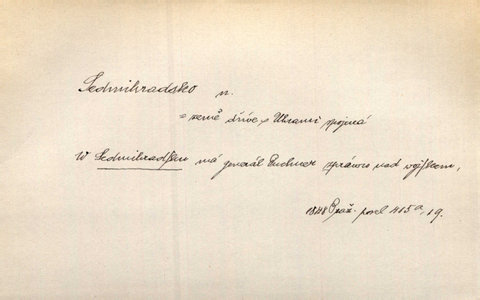 Sedmihradsko n.
= země dříve s Uhrami spojená
W Sedmihradſku má generál Puchner zpráwu nad wojſkem,
1848 Praž. posel 415a, 19.